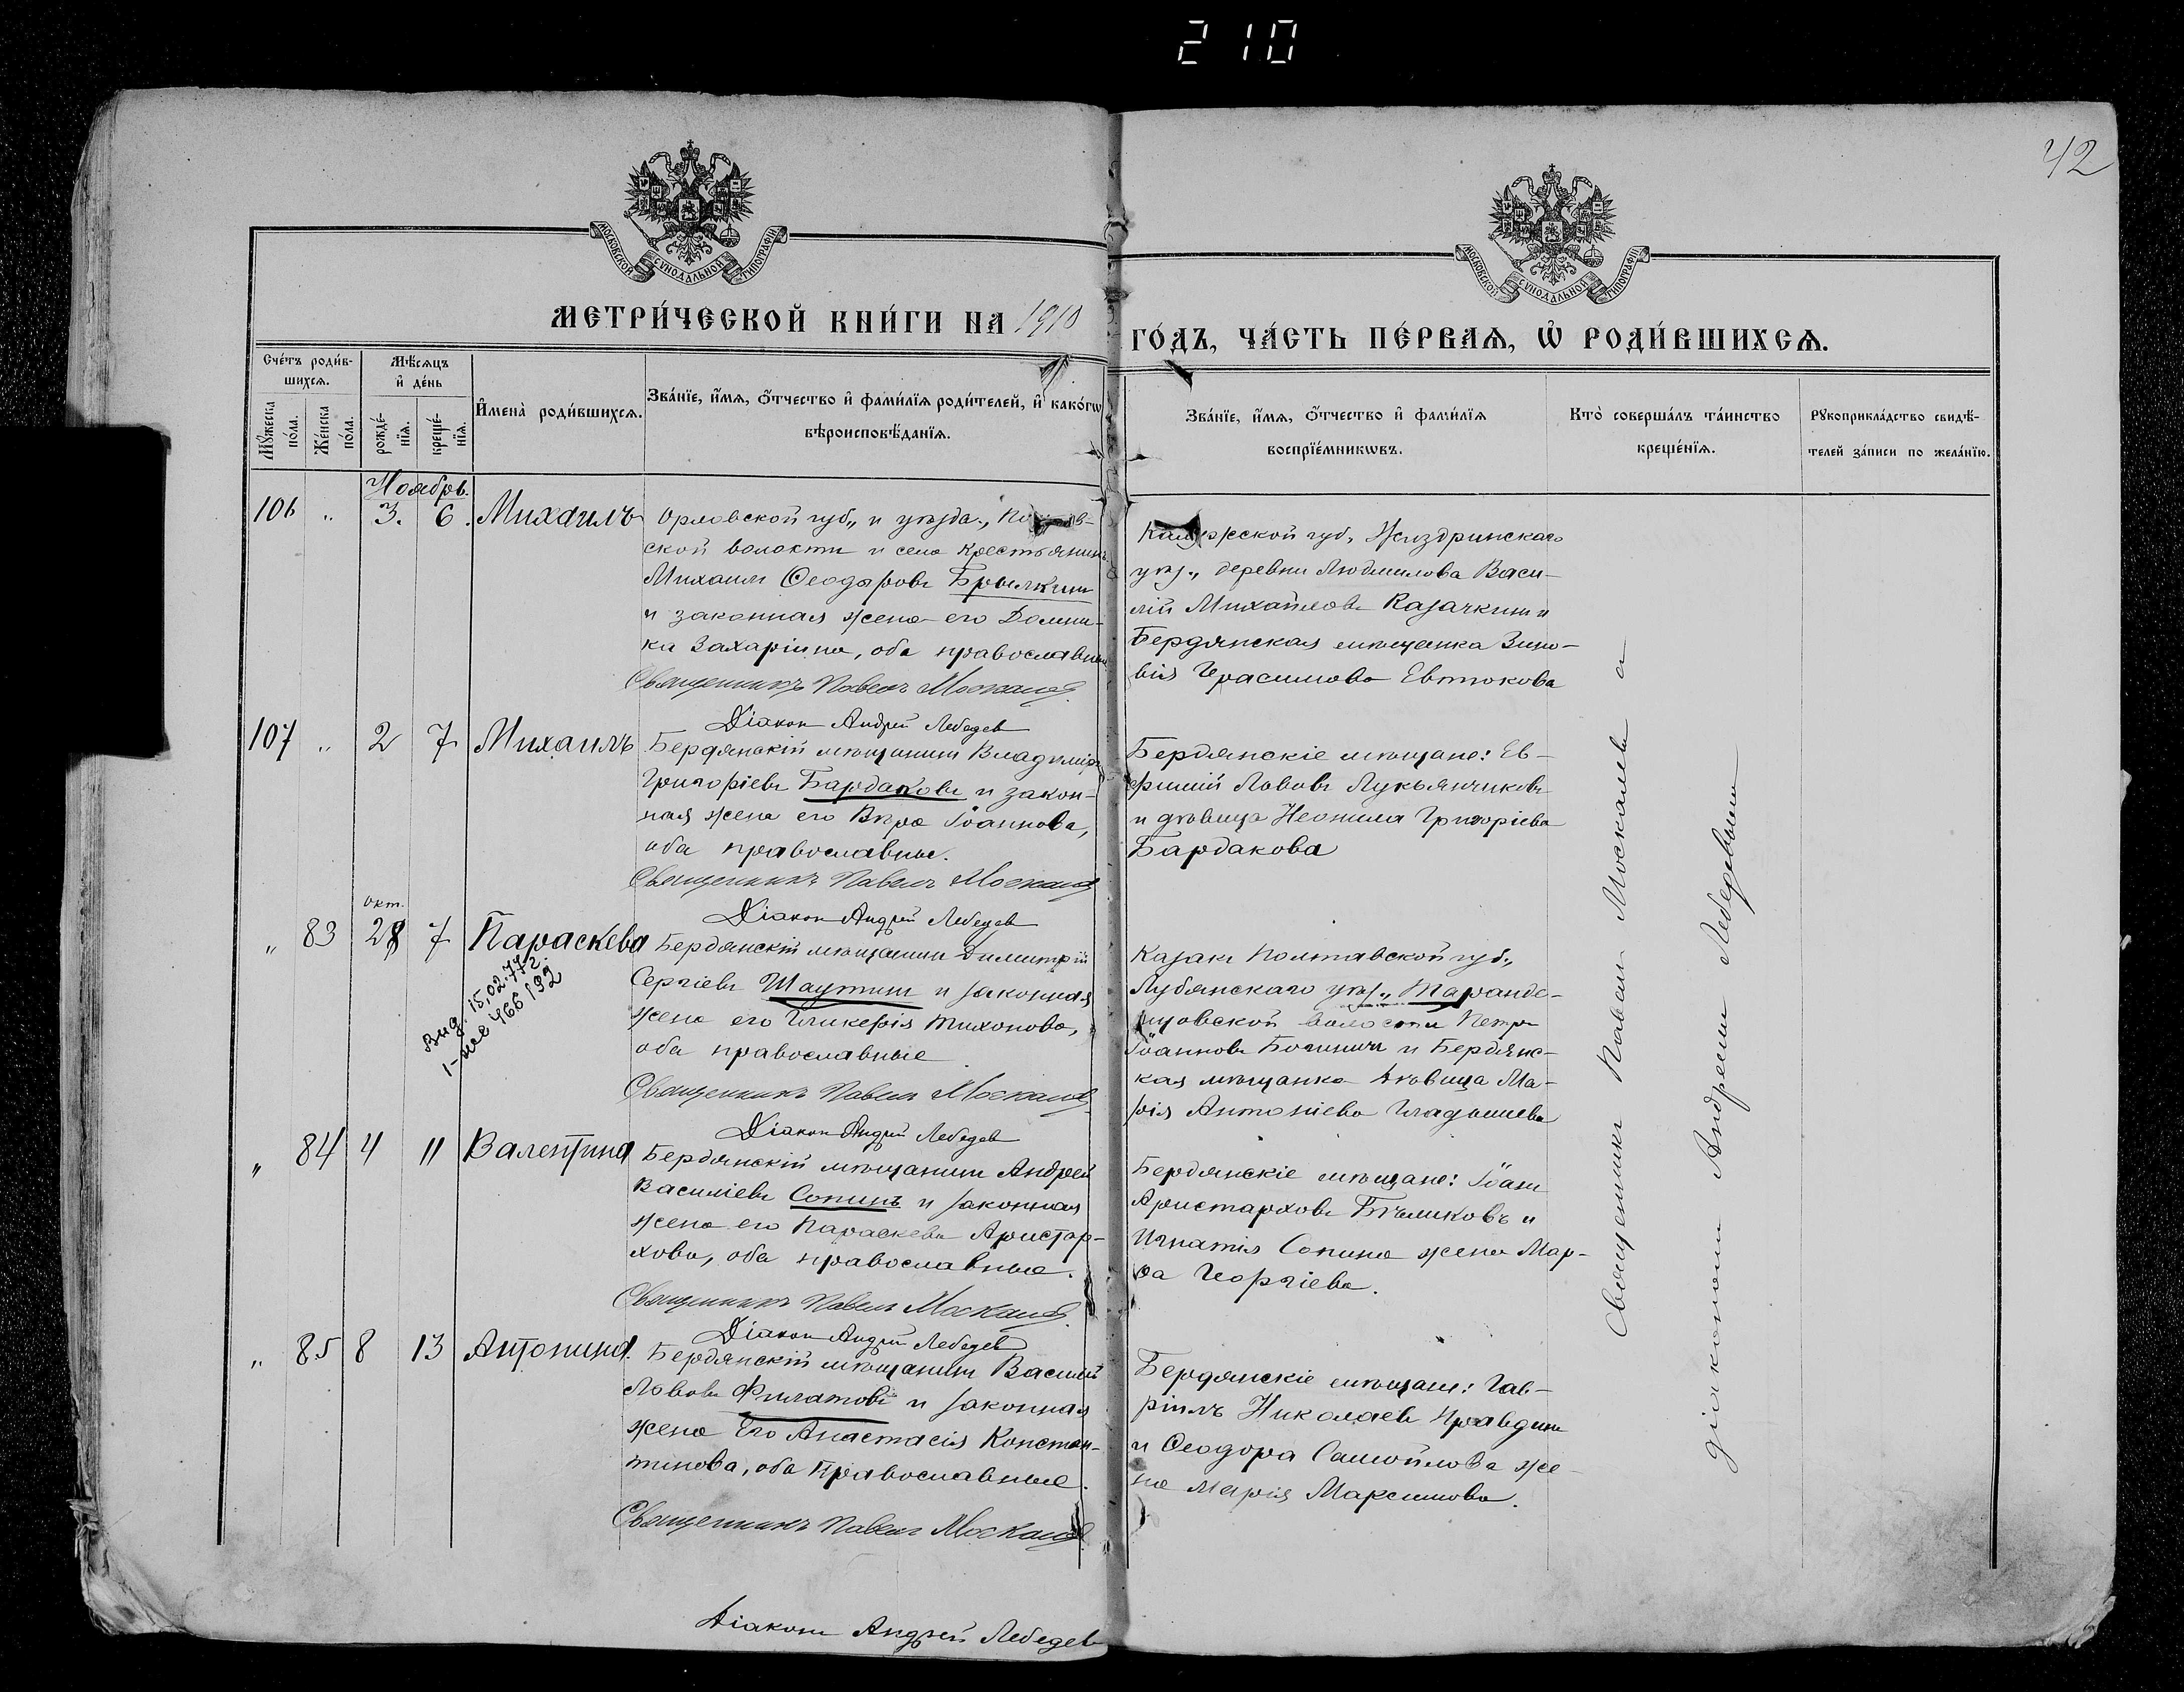 210
42
МОСКОВСКОЙ СѴНОДАЛЬНОЙ ТИПОГРАФІИ
МОСКОВСКОЙ СѴНОДАЛЬНОЙ ТИПОГРАФІИ
МЕТРИ́ЧЕСКОЙ КНИ́ГИ НА 1910
ГО́ДЪ, ЧА́СТЬ ПЕ́РВАѦ, Ѡ҆ РОДИ́ВШИХСѦ.
Сче́тъ роди́в-
шихсѧ.
Мѣ́сѧцъ
и҆ де́нь
Мꙋ́жеска
по́ла.
Же́нска
по́ла.
рожде́-
нїѧ.
креще́-
нїѧ.
И҆мена̀ роди́вшихсѧ.
Зва́нїе, и҆́мѧ, ѻ҆́тчество и҆ фами́лїѧ роди́телей, и҆ како́гѡ
вѣроисповѣ́данїѧ.
Зва́нїе, и҆́мѧ, ѻ҆́тчество и҆ фами́лїѧ
воспрїе́мникѡвъ.
Кто̀ соверша́лъ та́инство
креще́нїѧ.
Рꙋкоприкла́дство свидѣ́-
телей за́писи по жела́нїю.
Ноябрь.
106 „ 3. 6. Михаилъ
Орловской губ., и уѣзда.,
ской волости и села крестьянинъ
Михаилъ Ѳеодоровъ Брылкинъ
и законная жена его Домни-
ка Захаріина, оба православные
Священникъ Павелъ Москалев
Діаконъ Андрей Лебедев
Калужской губ., Жиздринскаго
уѣз., деревни Людинова Васи-
лій Михайловъ Казачкинъ и
Бердянская мѣщанка Зино-
вія Герасимова Евтюхова
107 „ 2 7 Михаилъ
Бердянскій мѣщанинъ Владиміръ
Григоріевъ Бардаковъ и закон-
ная жена его Вѣра Іоаннова,
оба православные.
Священникъ Павелъ Москалев
Діаконъ Андрей Лебедев
Бердянскіе мѣщане: Ев-
фимій Львовъ Лукьянчиковъ
и дѣвица Неонила Григоріева
Бардакова
окт.
„ 83 28 7 Параскева
Вид. 15.02.77г.
Бердянскій мѣщанинъ Димитрій
Сергіевъ Шаутинъ и законная
жена его Гликерія Тихонова,
оба православные
Священникъ Павелъ Москалев
Діаконъ Андрей Лебедев
Казакъ Полтавской губ.,
Лубянскаго уѣз., Таранде-
нцовской волости Петръ
Іоанновъ и Бердянс-
кая мѣщанка дѣвица Ма-
рія Антоніева Гладышева
„ 84 4 11 Валентина
Бердянскій мѣщанинъ Андрей
Василіевъ Сопинъ и законная
жена его Параскева Аристар-
хова, оба православные.
Священникъ Павелъ Москалев
Діаконъ Андрей Лебедев
Бердянскіе мѣщане: Іоаннъ
Аристарховъ Бѣликовъ и
Игнатія Сопина жена Мар-
ѳа Георгіева.
„ 85 8 13 Антонина.
Бердянскій мѣщанинъ Василій
Львовъ Филатовъ и законная
жена Его Анастасія Констан-
тинова, оба православные.
Священникъ Павелъ Москалев
Діаконъ Андрей Лебедев
Бердянскіе мѣщане: Гав-
ріилъ Николаевъ Правдинъ
и Ѳеодора Самойлова же-
на Марія Максимова.
Священникъ Павелъ Москалевъ с
діакономъ Андреемъ Лебедевымъ